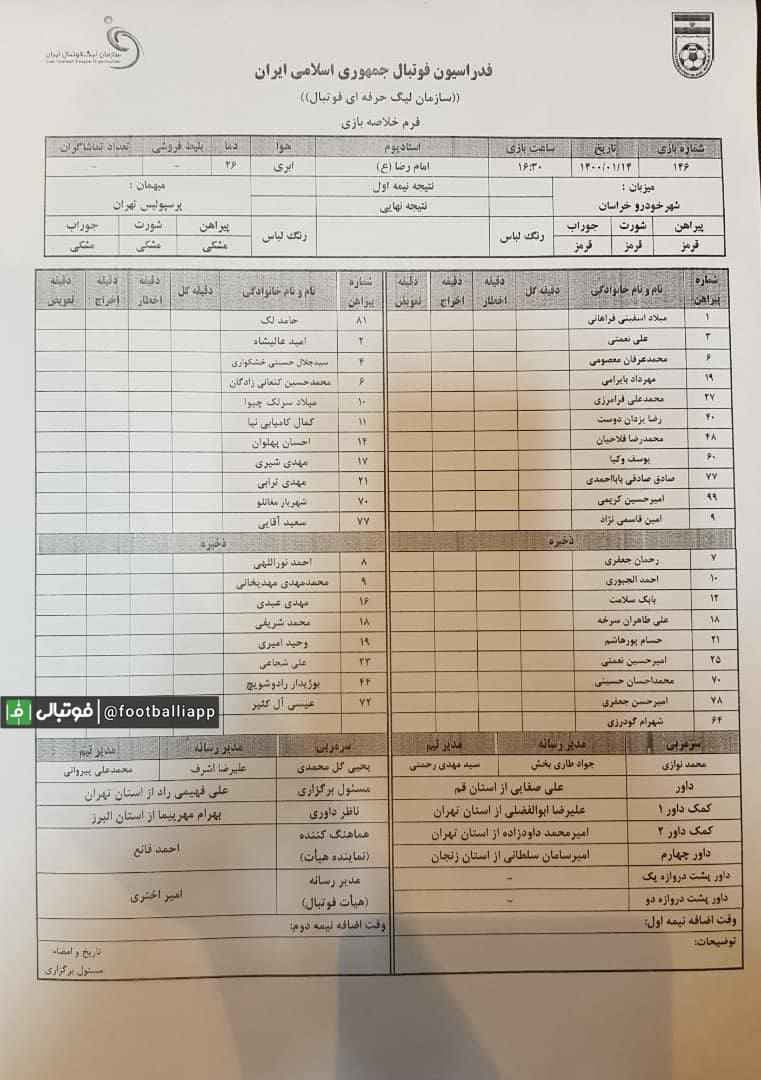 سازمان لیگ فوتبال ایران
فدراسیون فوتبال جمهوری اسلامی ایران
((سازمان لیگ حرفه ای فوتبال))
فرم خلاصه بازی
شماره بازی تاریخ ساعت بازی استادیوم هوا دما بلیط فروشی تعداد تماشاگران
۱۴۶ ۱۴۰۰/۰۱/۱۴ ۱۶:۳۰ امام رضا (ع) ابری ۲۶ - -
میزبان : نتیجه نیمه اول میهمان :
شهرخودرو خراسان نتیجه نهایی پرسپولیس تهران
پیراهن شورت جوراب رنگ لباس رنگ لباس پیراهن شورت جوراب
قرمز قرمز قرمز مشکی مشکی مشکی
شماره پیراهن نام و نام خانوادگی دقیقه گل دقیقه اخطار دقیقه اخراج دقیقه تعویض شماره پیراهن نام و نام خانوادگی دقیقه گل دقیقه اخطار دقیقه اخراج دقیقه تعویض
۱ میلاد اسفینی فراهانی ۸۱ حامد لک
۳ علی نعمتی ۲ امید عالیشاه
۶ محمدعرفان معصومی ۴ سیدجلال حسینی خشکواری
۱۹ مهرداد بایرامی ۶ محمدحسین کنعانی زادگان
۲۷ محمدعلی فرامرزی ۱۰ میلاد سرلک چیوا
۴۰ رضا یزدان دوست ۱۱ کمال کامیابی نیا
۴۸ محمدرضا فلاحیان ۱۴ احسان پهلوان
۶۰ یوسف وکیا ۱۷ مهدی شیری
۷۷ صادق صادقی بابااحمدی ۲۱ مهدی ترابی
۹۹ امیرحسین کریمی ۷۰ شهریار مغانلو
۹ امین قاسمی نژاد ۷۷ سعید آقایی
ذخیره ذخیره
۷ رحمان جعفری ۸ احمد نوراللهی
۱۰ احمد الجبوری ۹ محمدمهدی مهدیخانی
۱۲ بابک سلامت ۱۶ مهدی عبدی
۱۸ علی طاهران سرخه ۱۸ محمد شریفی
۲۱ حسام پورهاشم ۱۹ وحید امیری
۲۵ امیرحسین نعمتی ۳۳ علی شجاعی
۷۰ محمداحسان حسینی ۴۴ بوژیدار رادوشویچ
۷۸ امیرحسن جعفری ۷۲ عیسی آل کثیر
۶۴ شهرام گودرزی
فوتبالی | @footballiapp
سرمربی مدیر رسانه مدیر تیم سرمربی مدیر رسانه مدیر تیم
محمد نوازی جواد طاری بخش سید مهدی رحمتی یحیی گل محمدی علیرضا اشرف محمدعلی پیروانی
داور علی صفایی از استان قم مسئول برگزاری علی فهیمی راد از استان تهران
کمک داور ۱ علیرضا ابوالفضلی از استان تهران ناظر داوری بهرام مهرپیما از استان البرز
کمک داور ۲ امیرمحمد داودزاده از استان تهران هماهنگ کننده
داور چهارم امیرسامان سلطانی از استان زنجان (نماینده هیأت) احمد قانع
داور پشت دروازه یک - مدیر رسانه
داور پشت دروازه دو - (هیأت فوتبال) امیر اختری
وقت اضافه نیمه اول: وقت اضافه نیمه دوم:
توضیحات: تاریخ و امضاء
مسئول برگزاری